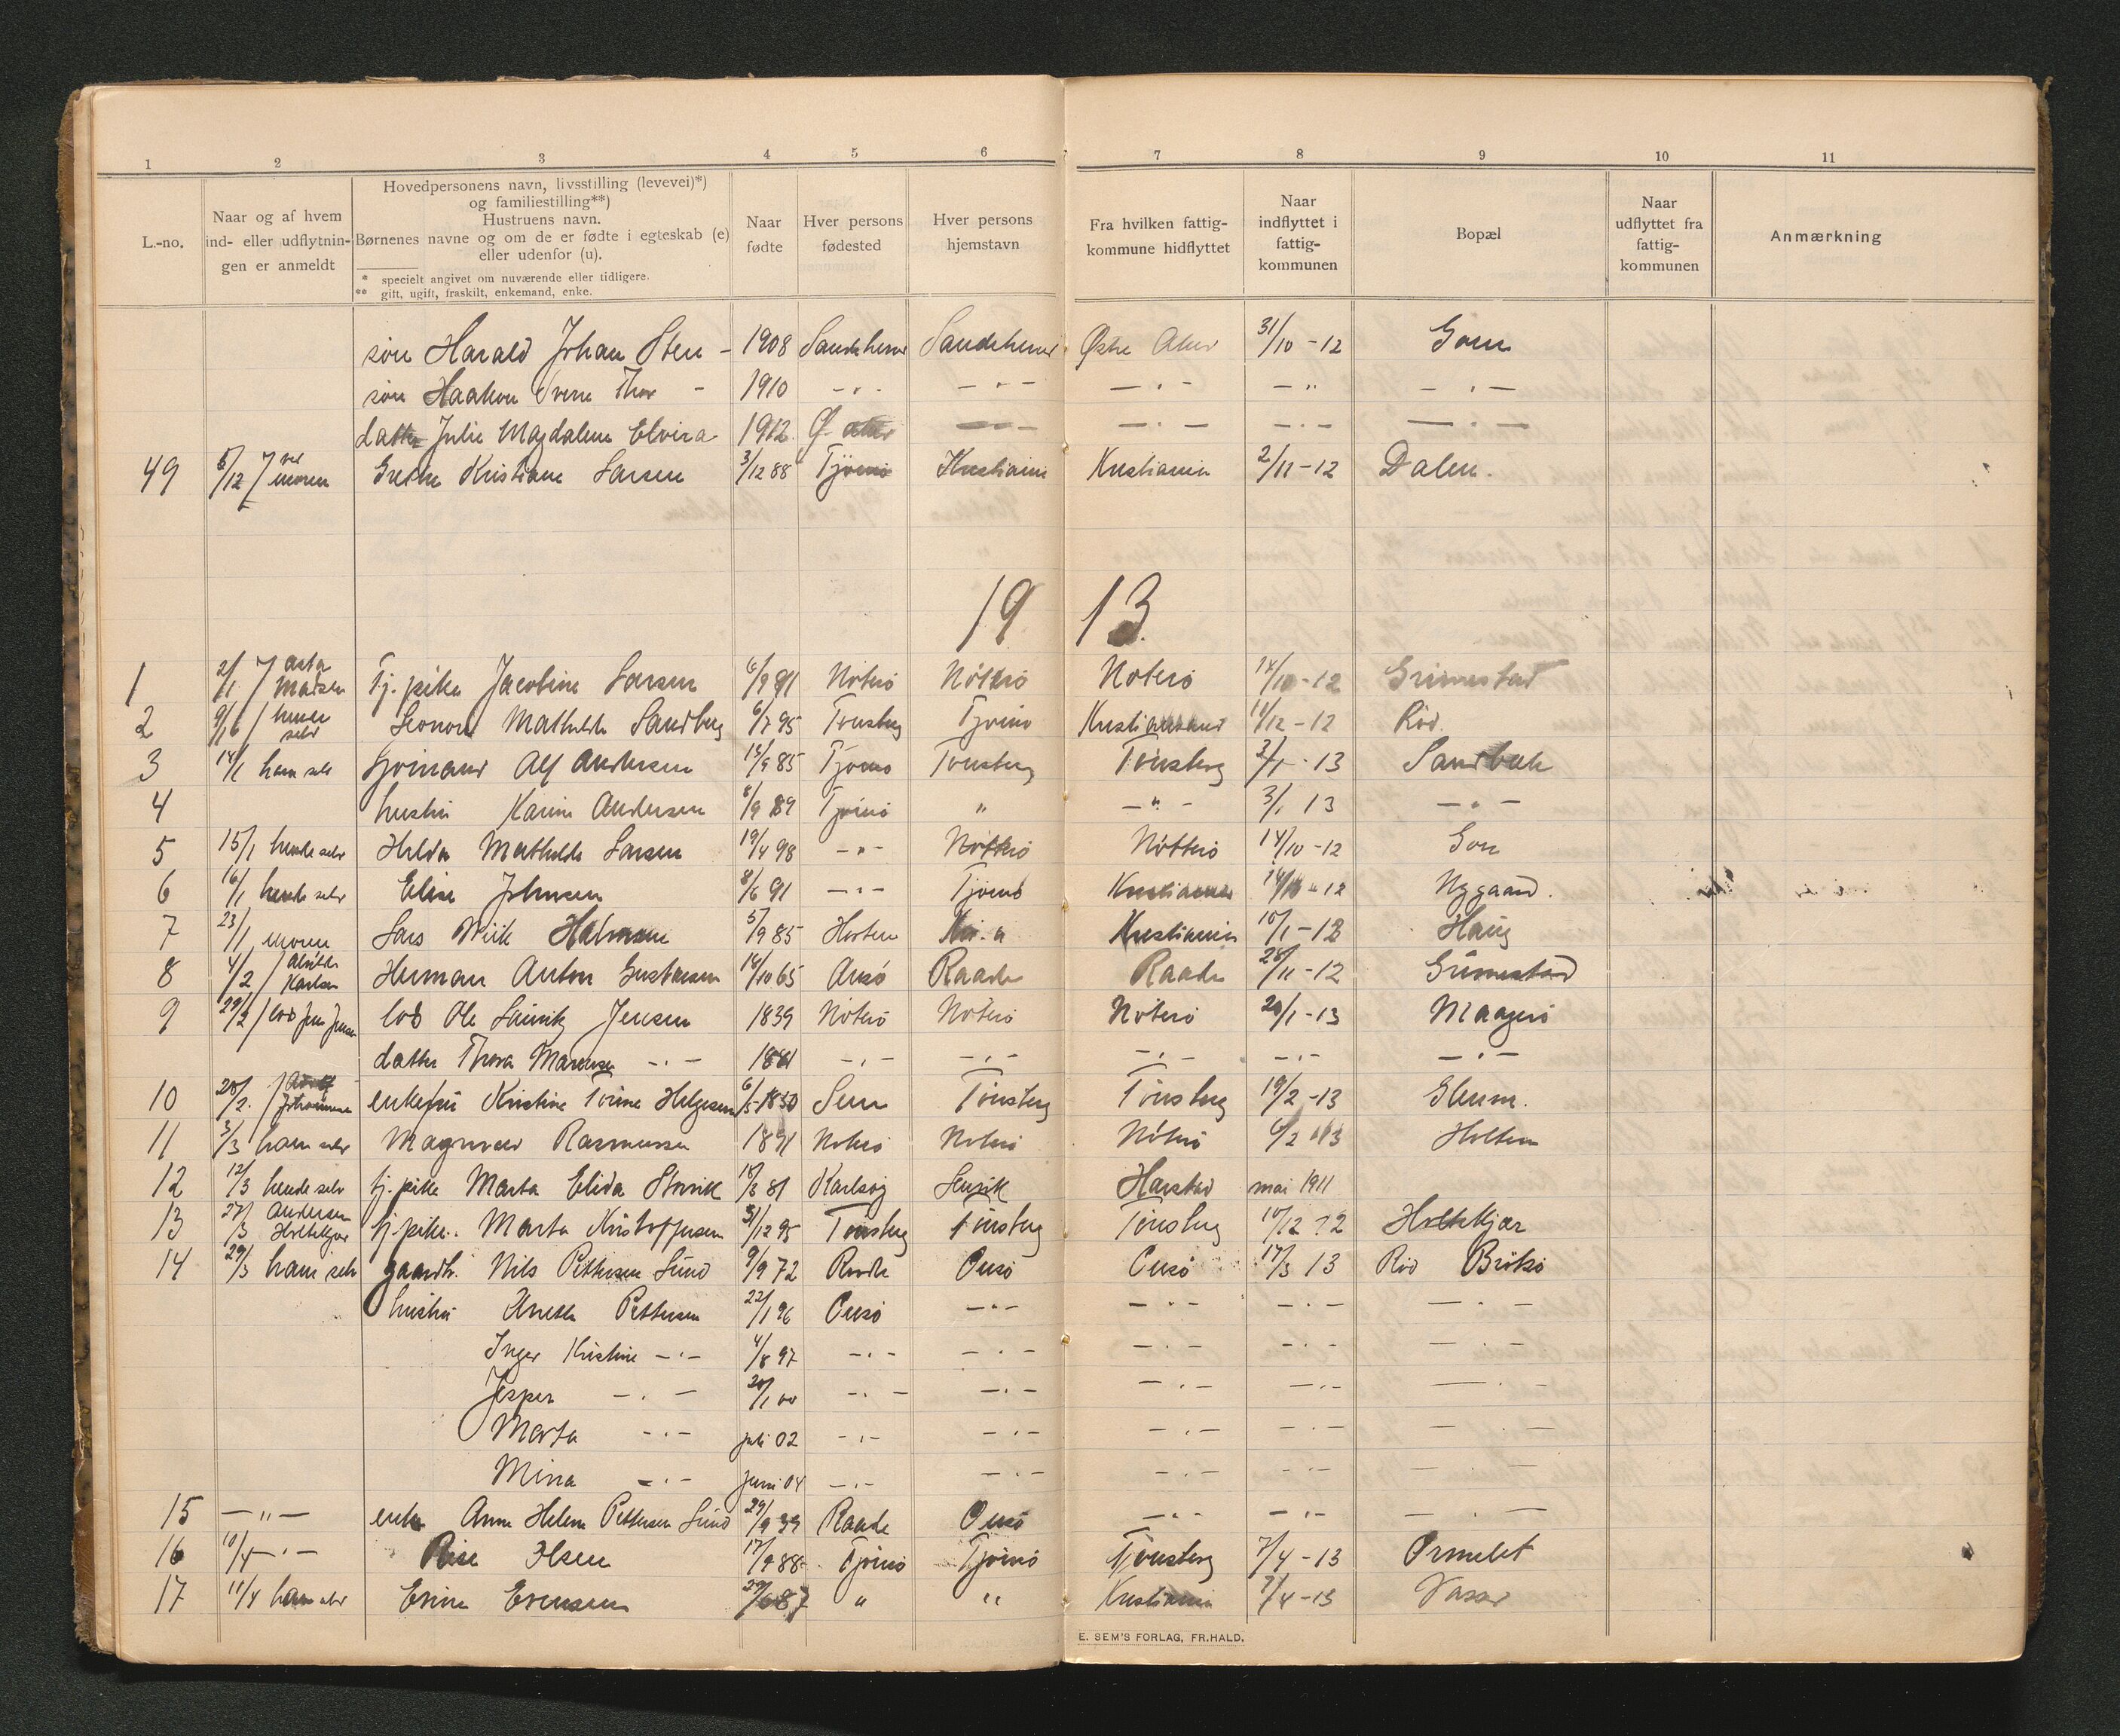 1 2 3 4 5 6 7 8 9 10 11
L.-no.
Naar og af hvem ind- eller udflytnin- gen er anmeldt
Hovedpersonens navn, livsstilling (levevei)*)
og familiestilling**)
Hustruens navn.
Børnenes navne og om de er fødte i egteskab (e)
eller udenfor (u).
* specielt angivet om nuværende eller tidligere.
** gift, ugift, fraskilt, enkemand, enke.
Naar fødte
Hver persons fødested
Hver persons hjemstavn
Fra hvilken fattig- kommune hidflyttet
Naar indflyttet i fattig- kommunen
Bopæl
Naar udflyttet fra fattig- kommunen
Anmærkning
søn Harald Johan Sten - 1908 Sandeherred Sandeherred Østre Aker 31/10 -12 Gom
søn Haakon Sverre Thor - 1910 -"- -"- -"- -" -"-
datter Julie Magdalene Elvira 1912 Ø. Aker -"- -"- -"-
49 5/12 / ved moren Grethe Kristiane Larsen 3/12 88 Tjömö Kristiania Kristiania 2/11 -12 Dalen.
1913.
1 2/1 / Asta Madsen Tj. pike Jacobine Larsen 6/9 91 Nøterö Nötterö Noterö 14/10 -12 Grimestad
2 / hende selv Leonora Mathilde Sandberg 6/7 95 Tönsberg Tjömö Kristiansand 11/12 -12 Röd.
3 14/1 ham selv Alf Andersen 85 Tjömö Tönsberg Tönsberg 3/1 - 13 Sandbæk
4 hustru Karin Andersen 8/9 89 Tjömö " -"- 3/1 13 -"-
5 15/1 hende selv Hilda Mathilde Larsen 19/4 98 -"- Nötterö Nötterö 14/10 -12 Gon
6 16/1 hende selv Elise Johnsen 8/6 91 -"- Tjömö Kristiania 14/10 -12 Nygaard.
7 23/1 moren Lars Wiik 5/9 85 Horten Kr. a Kristiania 10/1 -13 Haug
8 4/2 / Alvilde Karlsen Herman Anton Gustavsen 14/10 65 Onsö Raade Raade 28/11 -12 Grimestad
9 / lods Jens Jensen lods Ole Lauritz Jensen 1839 Nöterö Nöterö Nöterö 20/1 -13 Maagerö
datter Thora -"- 1881 -"- -"- -"- -"- -"-
10 28/2. / Johannesen enkefru Kristine Torine Helgesen 6/5 1830 Sem Tönsberg Tönsberg 19/2 -13 Glenne.
11 3/3 ham selv Magnvald Rasmussen 1891 Noterö Noterö Nöterö 6/2 13 Holtem
12 12/3 hende selv tj. pike Marta Elida 18/3 81 Karlsøy Lenvik Harstad mai 1911
13 27/3 Andersen Holtekjær tj. pike. Marta Kristoffersen 31/12 95 Tönsberg Tönsberg Tönsberg 10/12 12 Holtekjær
14 29/3 ham selv gaardbr. Nils Pettersen Sund 9/9 72 Raade Onsö Onsö 17/3 13 Röd Brötsö
hustru Anette Pettersen 22/1 96 Onsö -"- -"- -"- -"-
Inger Kristine -"- 4/8 97 -"- -"- -"- -"- -"-
Jesper -"- 20/1 00 -"- -"- -"- -"- -"-
Marta -"- juli 02 -"- -"- -"- -"- -"-
Mina -"- juni 04 -"- -"- -"- -"- -"-
15 -"- enke Anne Helene Pettersen Sund 29/9 39 Raade Onsö -"- -"- -"-
16 10/4 -"- Olsen 17/9 88 Tjömö Tjömö Tönsberg 7/4 -13 Ormelet
17 11/4 ham selv Evensen 87 " " Kristiania 7/4 -13 Vasser
E. SEM'S FORLAG, FR.HALD.